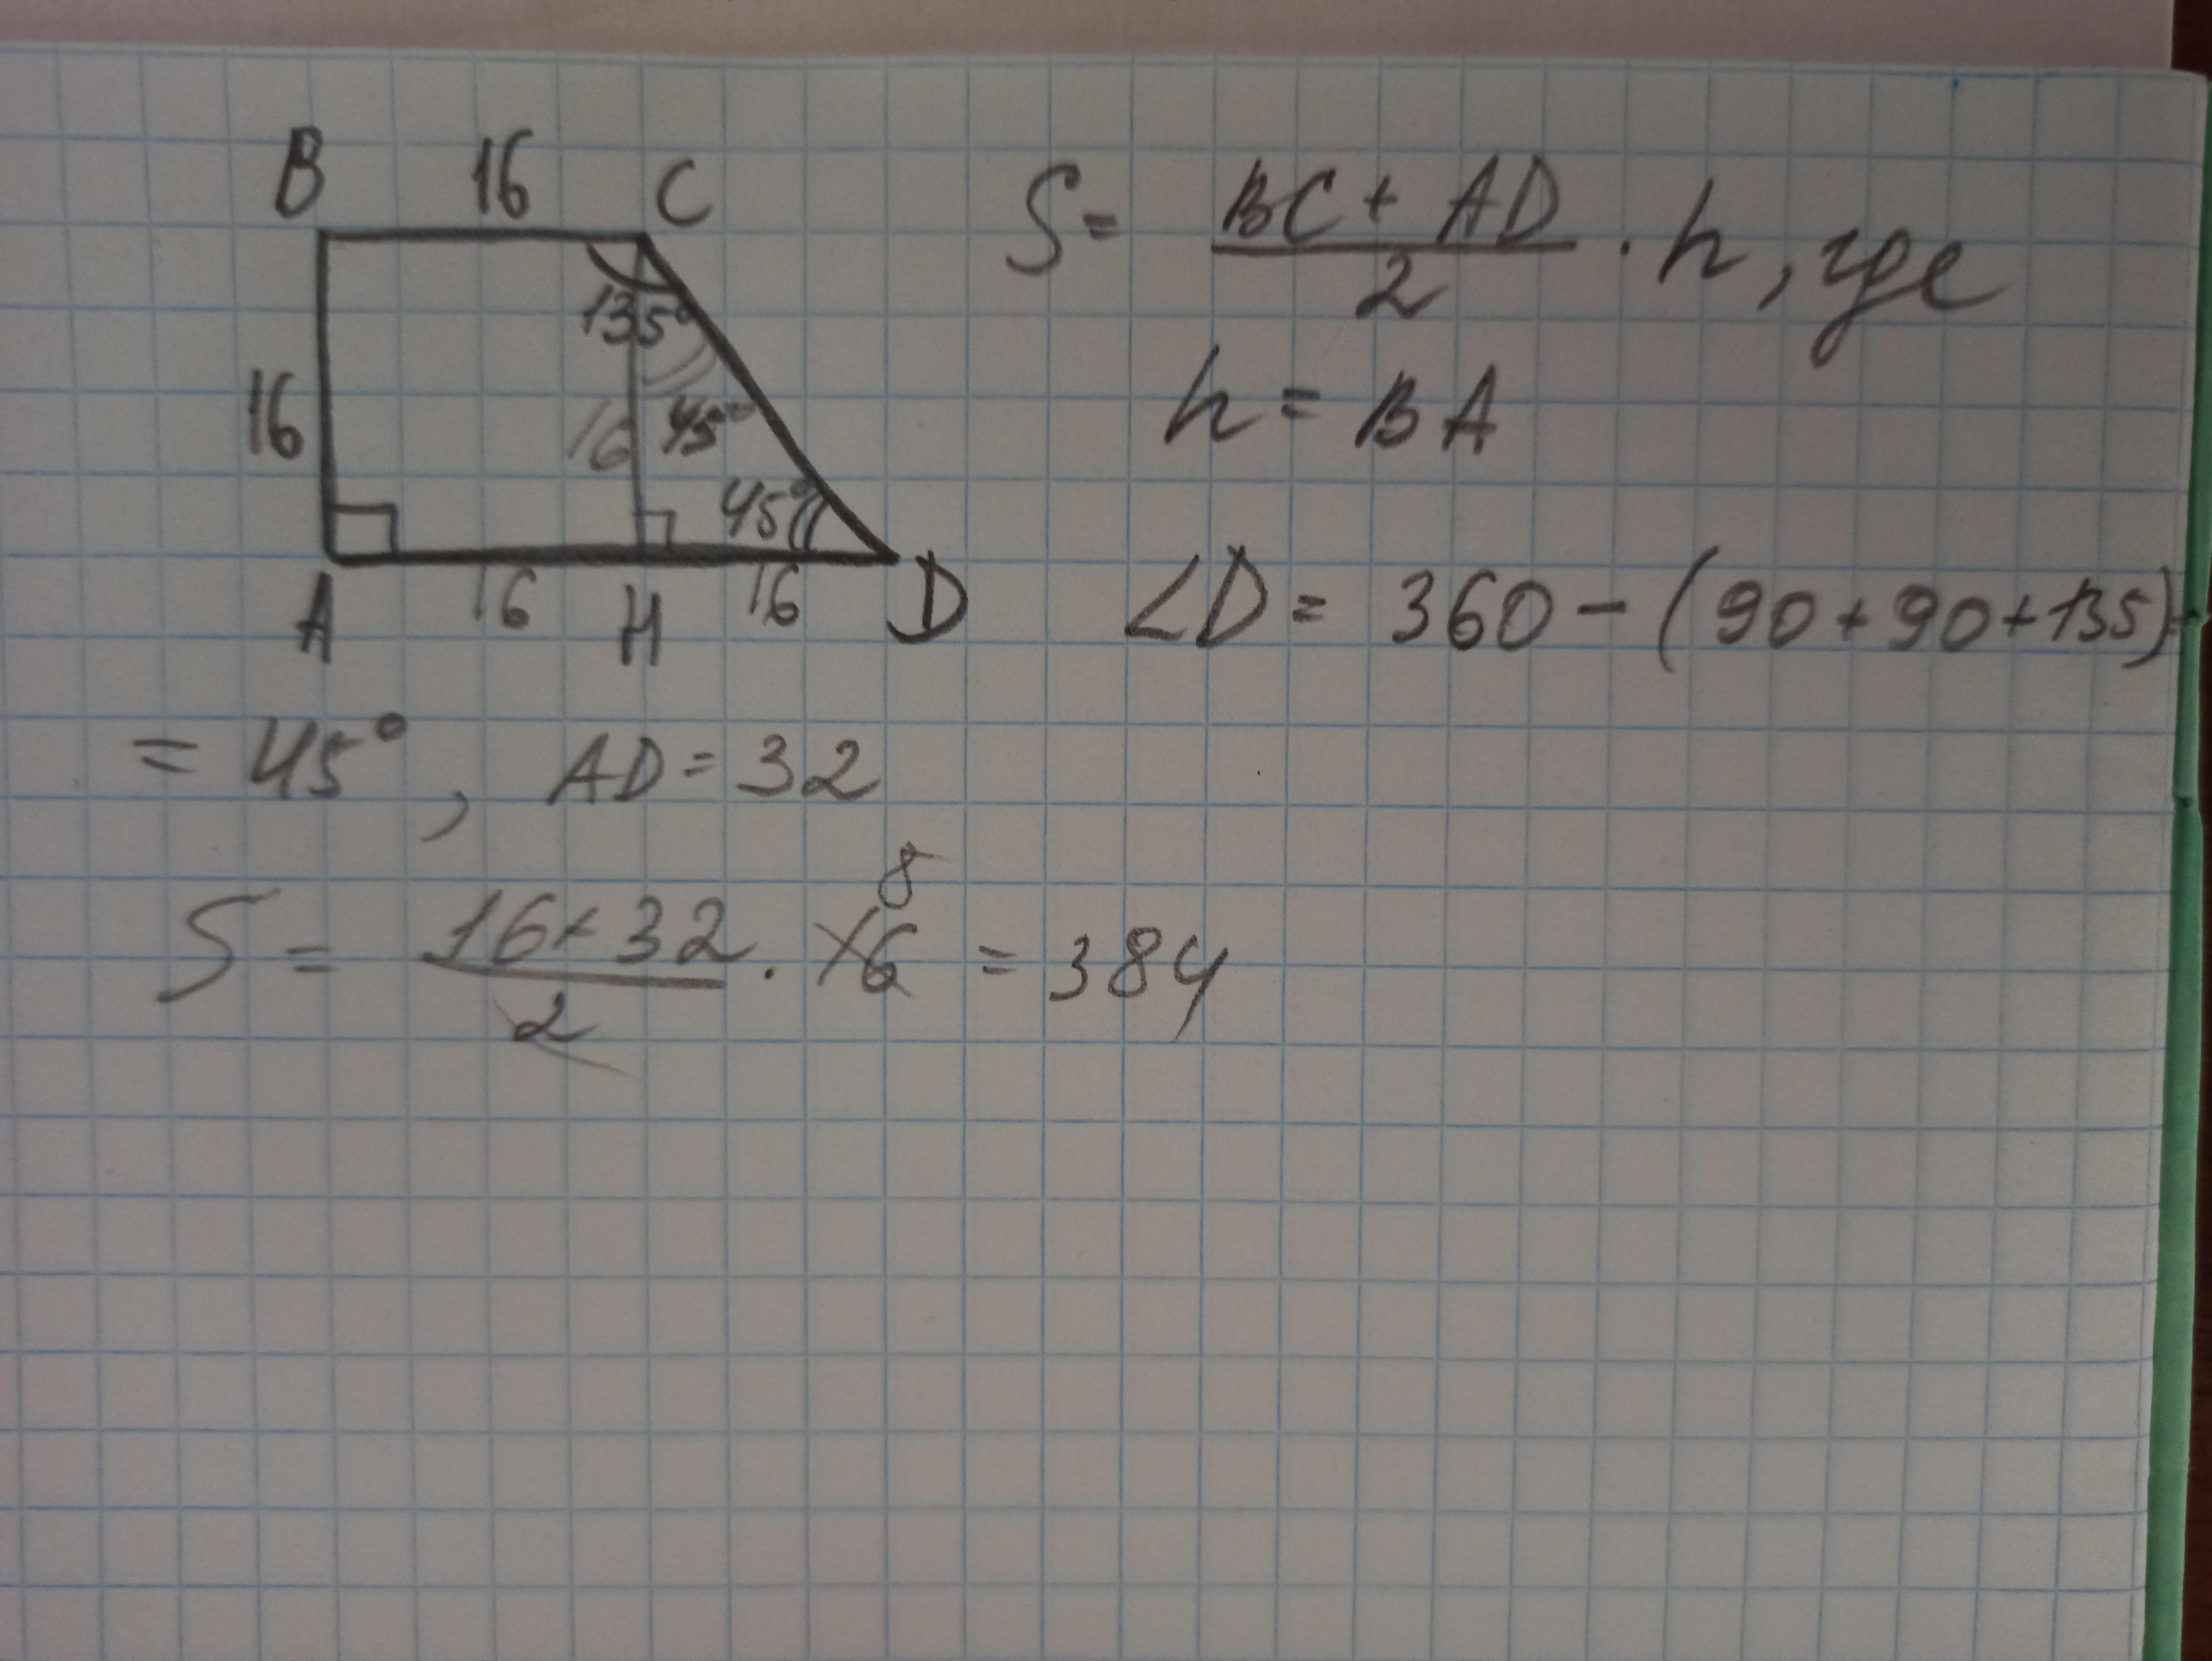 B 16 C
S = (BC + AD)/2 · h, где
135°
16 16 45°
h = BA
45°
A 16 H 16 D
∠D = 360 - (90 + 90 + 135) =
= 45°, AD = 32
8
S = (16 + 32)/2 · 16 = 384